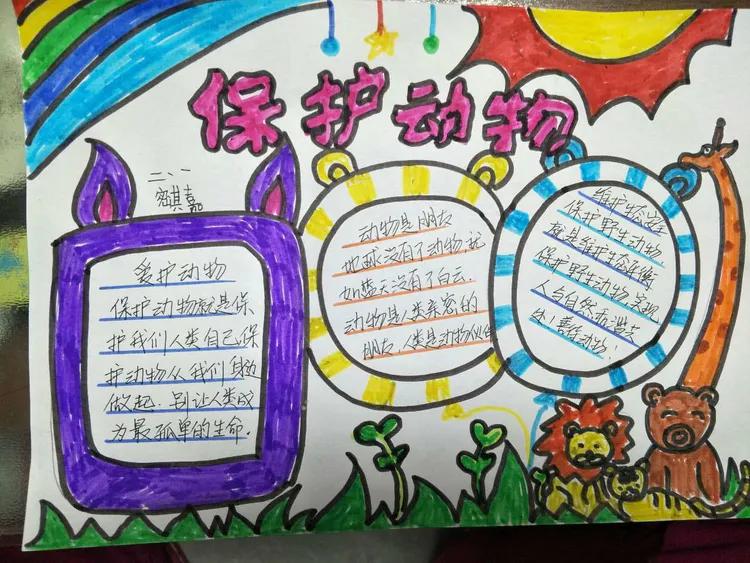 保护动物
二、一
其嘉
爱护动物
保护动物就是保
护我们人类自己保
护动物从我们身边
做起.别让人类成
为最孤单的生命.
动物是朋友
地球没有了动物,就
如蓝天没有了白云.
动物是人类亲密的
朋友,人类是动物伙伴
维护
保护野生动物
就是维护生态平衡
保护野生动物,实现
人与自然和谐共
善待动物!